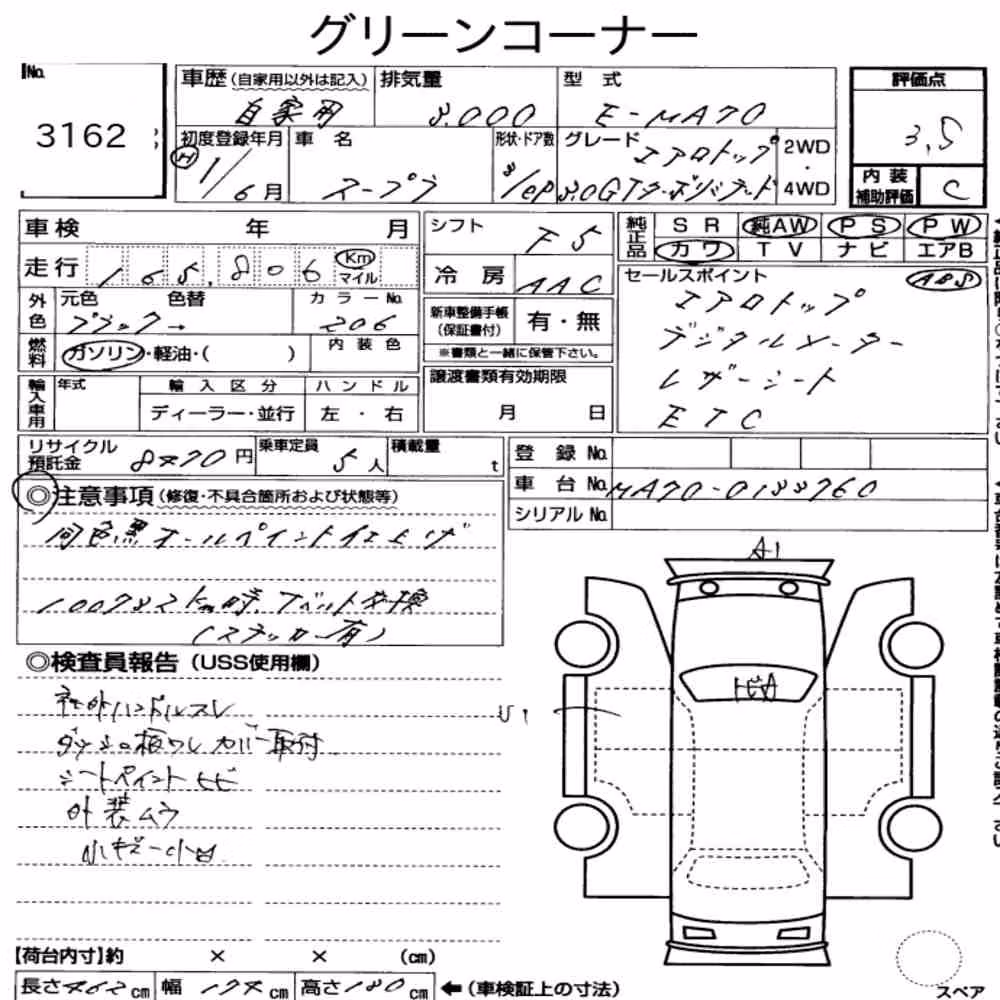 グリーンコーナー
No.
3162
車歴（自家用以外は記入）
自家用
排気量
3.000
型式
E-MA70
評価点
3.5
初度登録年月
H 1/6月
車名
スープラ
形状・ドア数
3/
グレード
エアロトップ
3.0GTターボリミテッド
2WD
・
4WD
内装
補助評価
C
車検 年 月
走行 165,806 Km マイル
シフト
F5
冷房
AAC
純正品
SR 純AW PS PW
カワ TV ナビ エアB
外色
元色 色替
ブラック→
カラーNo.
206
新車整備手帳
（保証書付）
有・無
※書類と一緒に保管下さい。
セールスポイント
ABS
エアロトップ
デジタルメーター
レザーシート
ETC
燃料
ガソリン・軽油・（ ）
内装色
輸入車用
年式
輸入区分
ディーラー・並行
ハンドル
左・右
譲渡書類有効期限
月 日
リサイクル
預託金
8470円
乗車定員
5人
積載量
t
登録No.
車台No.
MA70-0133760
シリアルNo.
◎注意事項（修復・不具合箇所および状態等）
同色黒オールペイント仕上げ
100782km時、
（ステッカー有）
◎検査員報告（USS使用欄）
社外ハンドルスレ
ダッシュ板ワレ カバー取付
シートペイントヒビ
外装ムラ
小キズ小凹
A1
トビA
U1
【荷台内寸】約 × × （cm）
長さ462cm 幅174cm 高さ130cm ←（車検証上の寸法）
スペア